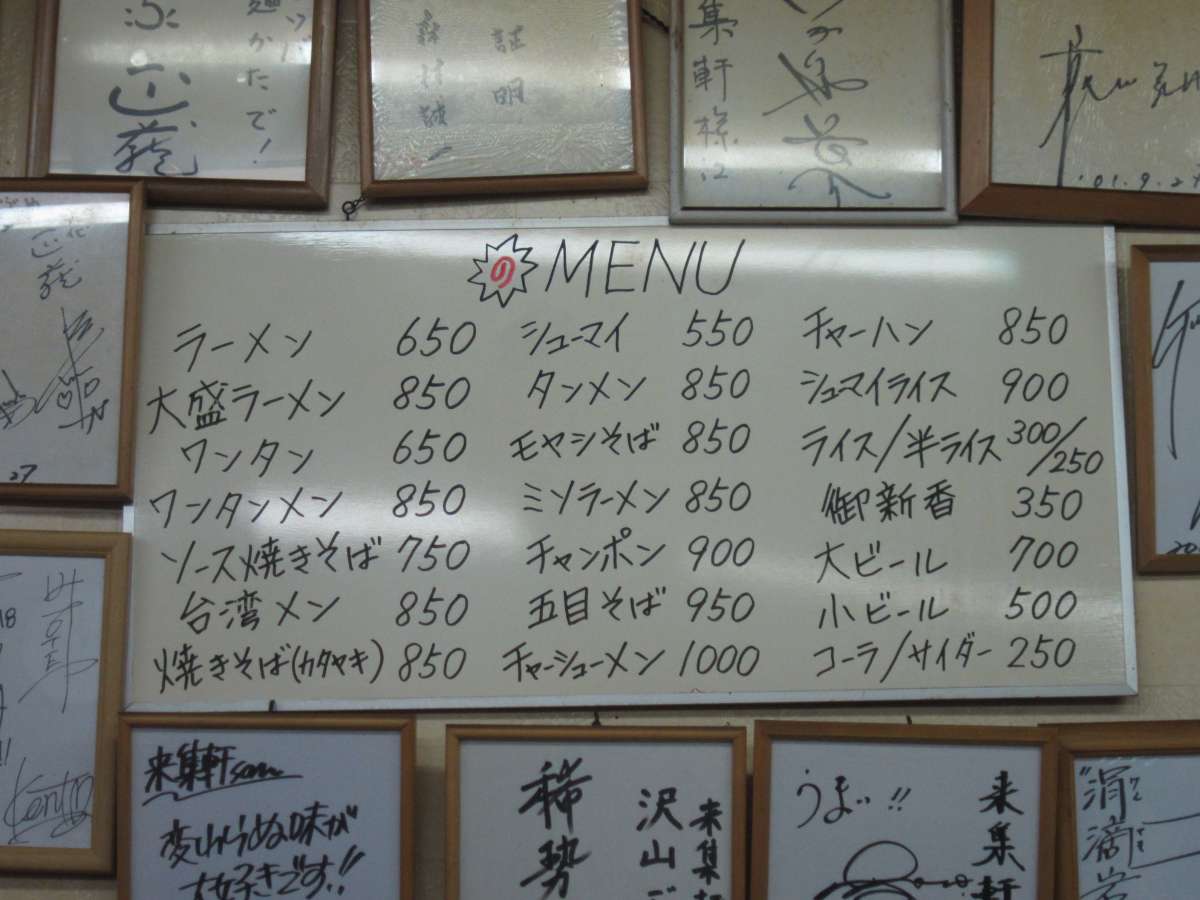 麺かたで!
証明
集軒様江
'01.9.2
の MENU
ラーメン 650 シューマイ 550 チャーハン 850
大盛ラーメン 850 タンメン 850 シュマイライス 900
ワンタン 650 モヤシそば 850 ライス/半ライス 300/250
ワンタンメン 850 ミソラーメン 850 御新香 350
ソース焼きそば 750 チャンポン 900 大ビール 700
台湾メン 850 五目そば 950 小ビール 500
焼きそば(カタヤキ) 850 チャーシューメン 1000 コーラ/サイダー 250
27
20
18
来集軒さん
変わらぬ味が
大好きです!!
来集軒
沢山ご
稀勢
来集軒
うまい!!